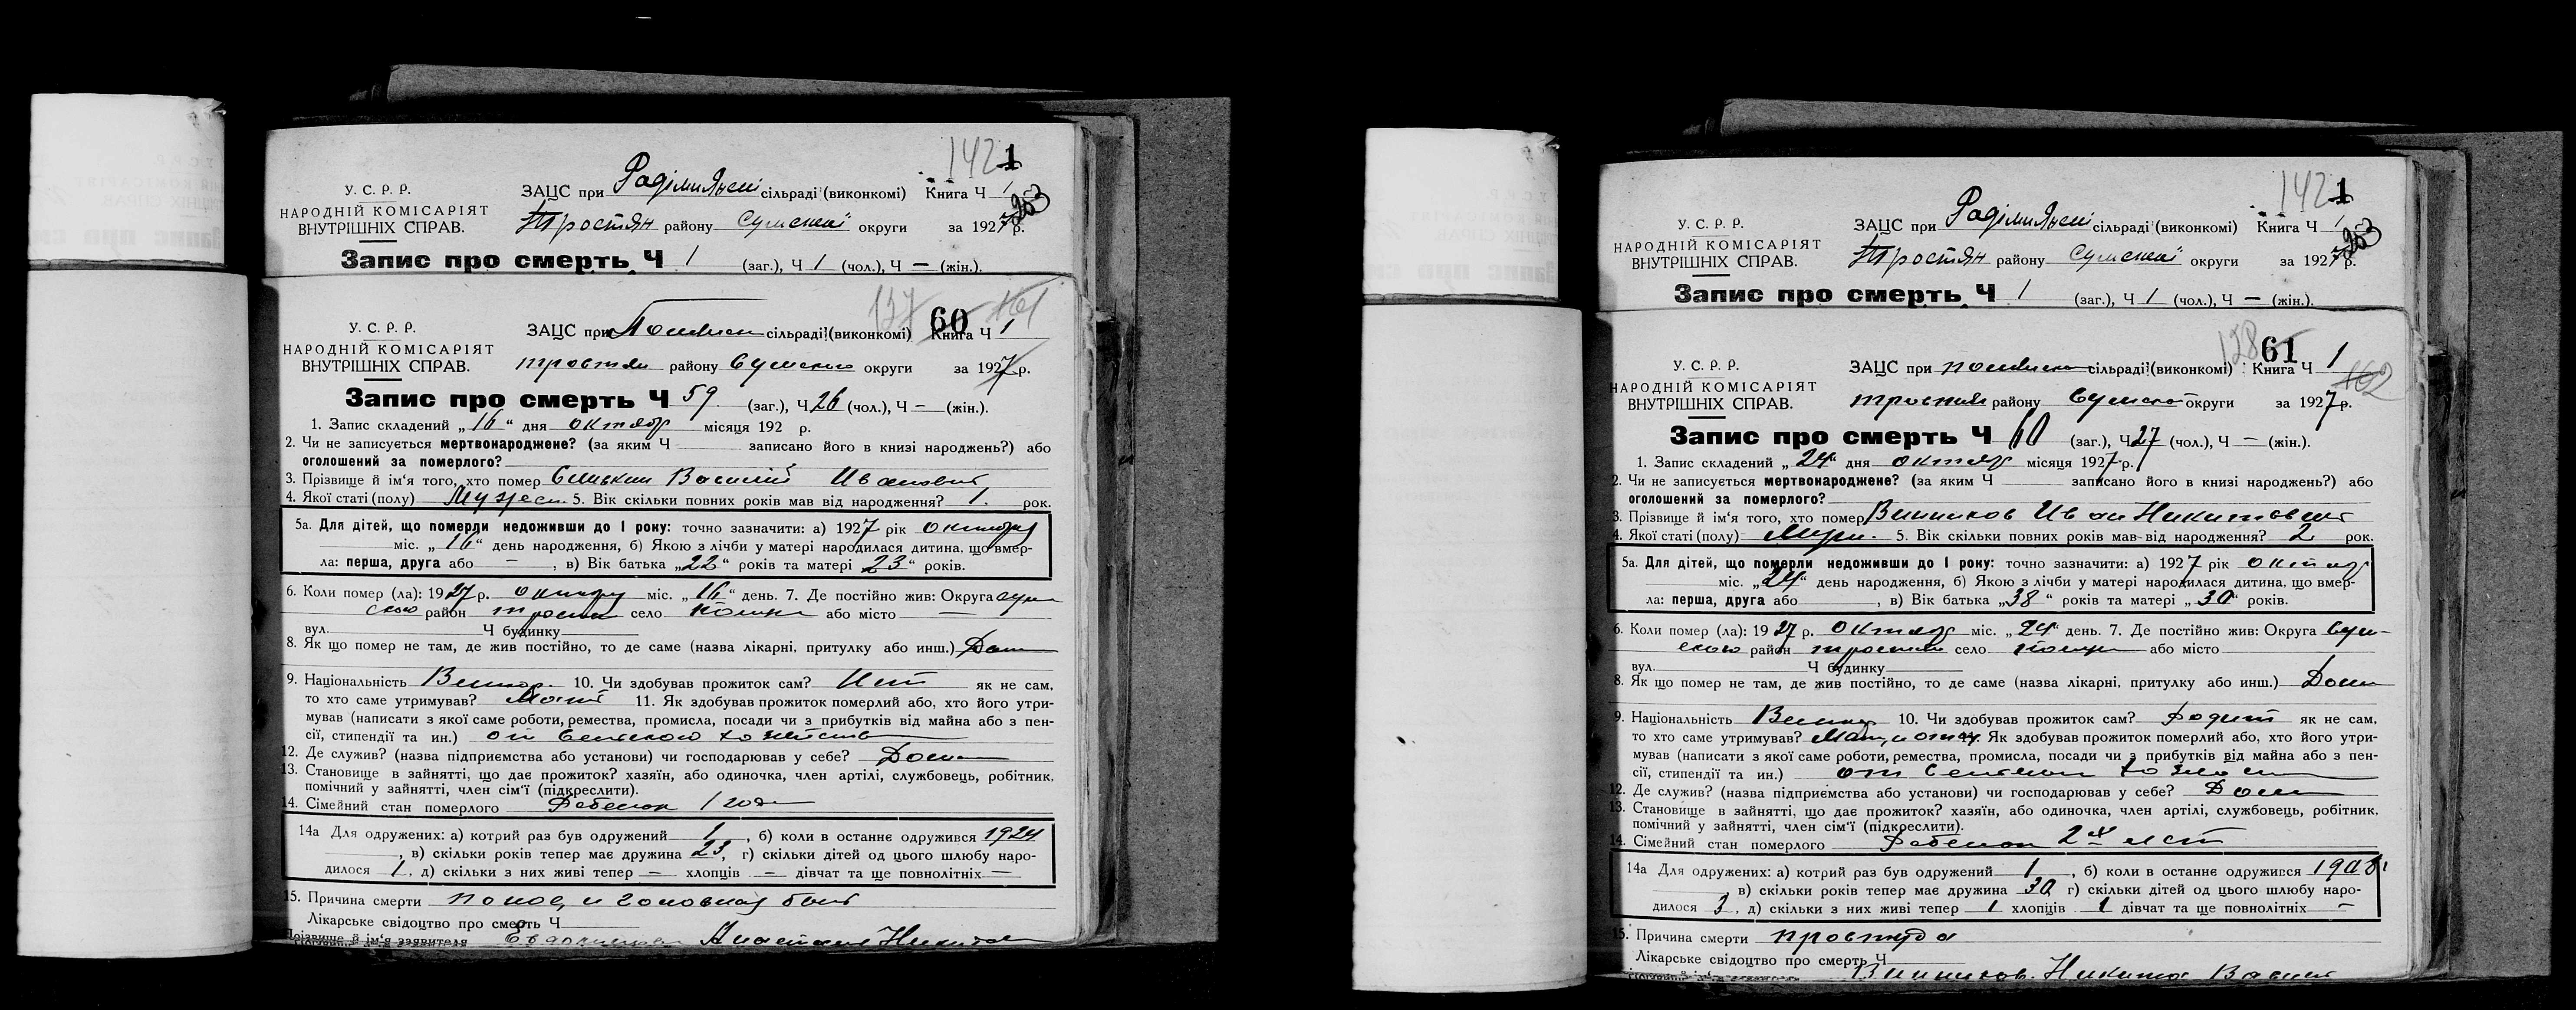 142 1
У. С. Р. Р.
НАРОДНІЙ КОМІСАРІЯТ
ВНУТРІШНІХ СПРАВ.
ЗАЦС при сільраді (виконкомі) Книга Ч 1
Тростян району Сумської округи за 1927 р.
253
Запис про смерть Ч 1 (заг.), Ч 1 (чол.), Ч — (жін.).
137 161
60
У. С. Р. Р.
НАРОДНІЙ КОМІСАРІЯТ
ВНУТРІШНІХ СПРАВ.
ЗАЦС при сільраді (виконкомі) Книга Ч 1
тростян району Сумского округи за 1927 р.
Запис про смерть Ч 59 (заг.), Ч 26 (чол.), Ч — (жін.).
1. Запис складений „16“ дня октябр місяця 192 р.
2. Чи не записується мертвонароджене? (за яким Ч записано його в книзі народжень?) або
оголошений за померлого?
3. Прізвище й ім'я того, хто помер Василий Иванович
4. Якої статі (полу) Мужеск. 5. Вік скільки повних років мав від народження? 1. рок.
5а. Для дітей, що померли недоживши до 1 року: точно зазначити: а) 1927 рік октября
міс. „16“ день народження, б) Якою з лічби у матері народилася дитина, що вмер-
ла: перша, друга або —, в) Вік батька „22“ років та матері 23“ років.
6. Коли помер (ла): 1927 р. октябр міс. „16“ день. 7. Де постійно жив: Округа Сум
ского район тростян село або місто —
вул. Ч будинку
8. Як що помер не там, де жив постійно, то де саме (назва лікарні, притулку або инш.) Дома
9. Національність Великор. 10. Чи здобував прожиток сам? Нет як не сам,
то хто саме утримував? Мать 11. Як здобував прожиток померлий або, хто його утри-
мував (написати з якої саме роботи, ремества, промисла, посади чи з прибутків від майна або з пен-
сії, стипендії та ин.) от Сельского хозяйства
12. Де служив? (назва підприємства або установи) чи господарював у себе? Дома
13. Становище в зайнятті, що дає прожиток? хазяїн, або одиночка, член артілі, службовець, робітник,
помічний у зайнятті, член сім'ї (підкреслити).
14. Сімейний стан померлого Ребенок 1 года
14а Для одружених: а) котрий раз був одружений 1, б) коли в останнє одружився 1924
, в) скільки років тепер має дружина 23, г) скільки дітей од цього шлюбу наро-
дилося 1, д) скільки з них живі тепер — хлопців — дівчат та ще повнолітніх —
15. Причина смерти понос и головная боль
Лікарське свідоцтво про смерть Ч
Прізвище й ім'я заявителя Анастасия Никитов
142 1
У. С. Р. Р.
НАРОДНІЙ КОМІСАРІЯТ
ВНУТРІШНІХ СПРАВ.
ЗАЦС при сільраді (виконкомі) Книга Ч 1
Тростян району Сумської округи за 1927 р.
253
Запис про смерть Ч 1 (заг.), Ч 1 (чол.), Ч — (жін.).
138 61
162
У. С. Р. Р.
НАРОДНІЙ КОМІСАРІЯТ
ВНУТРІШНІХ СПРАВ.
ЗАЦС при сільраді (виконкомі) Книга Ч 1
тростян району Сумского округи за 1927 р.
Запис про смерть Ч 60 (заг.), Ч 27 (чол.), Ч — (жін.).
1. Запис складений „24“ дня октябр місяця 1927 р.
2. Чи не записується мертвонароджене? (за яким Ч записано його в книзі народжень?) або
оголошений за померлого?
3. Прізвище й ім'я того, хто помер Винников Иван Никитович
4. Якої статі (полу) Муж. 5. Вік скільки повних років мав від народження? 2 рок.
5а. Для дітей, що померли недоживши до 1 року: точно зазначити: а) 1927 рік октяб
міс. „24“ день народження, б) Якою з лічби у матері народилася дитина, що вмер-
ла: перша, друга або , в) Вік батька „38“ років та матері „30“ років.
6. Коли помер (ла): 1927 р. октябр міс. „24“ день. 7. Де постійно жив: Округа Сум-
ского район тростян село або місто
вул. Ч будинку
8. Як що помер не там, де жив постійно, то де саме (назва лікарні, притулку або инш.) Дома
9. Національність Великор 10. Чи здобував прожиток сам? Родит як не сам,
то хто саме утримував? Мать и отец Як здобував прожиток померлий або, хто його утри-
мував (написати з якої саме роботи, ремества, промисла, посади чи з прибутків від майна або з пен-
сії, стипендії та ин.) от Сельского
12. Де служив? (назва підприємства або установи) чи господарював у себе? Дома
13. Становище в зайнятті, що дає прожиток? хазяїн, або одиночка, член артілі, службовець, робітник,
помічний у зайнятті, член сім'ї (підкреслити).
14. Сімейний стан померлого Ребенок 2х лет
14а Для одружених: а) котрий раз був одружений 1, б) коли в останнє одружився 1908
, в) скільки років тепер має дружина 30 г) скільки дітей од цього шлюбу наро-
дилося 3, д) скільки з них живі тепер 1 хлопців 1 дівчат та ще повнолітніх —
15. Причина смерти простуда
Лікарське свідоцтво про смерть Ч
Винников Никита Васил